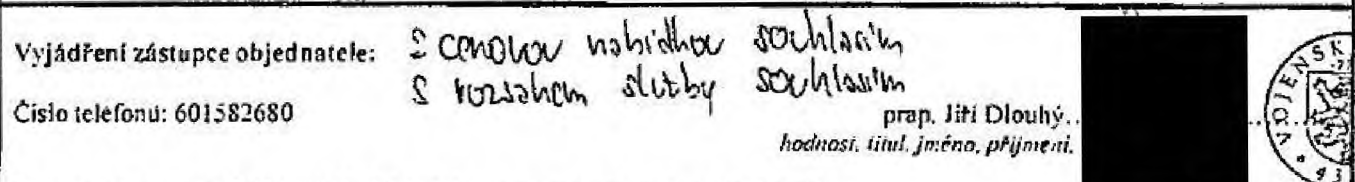 Vyjádření zástupce objednatele: S cenovou nabídkou souhlasím
S rozsahem služby souhlasím
Číslo telefonu: 601582680
prap. Jiří Dlouhý..
hodnost, titul, jméno, příjmení.
VOJENSK